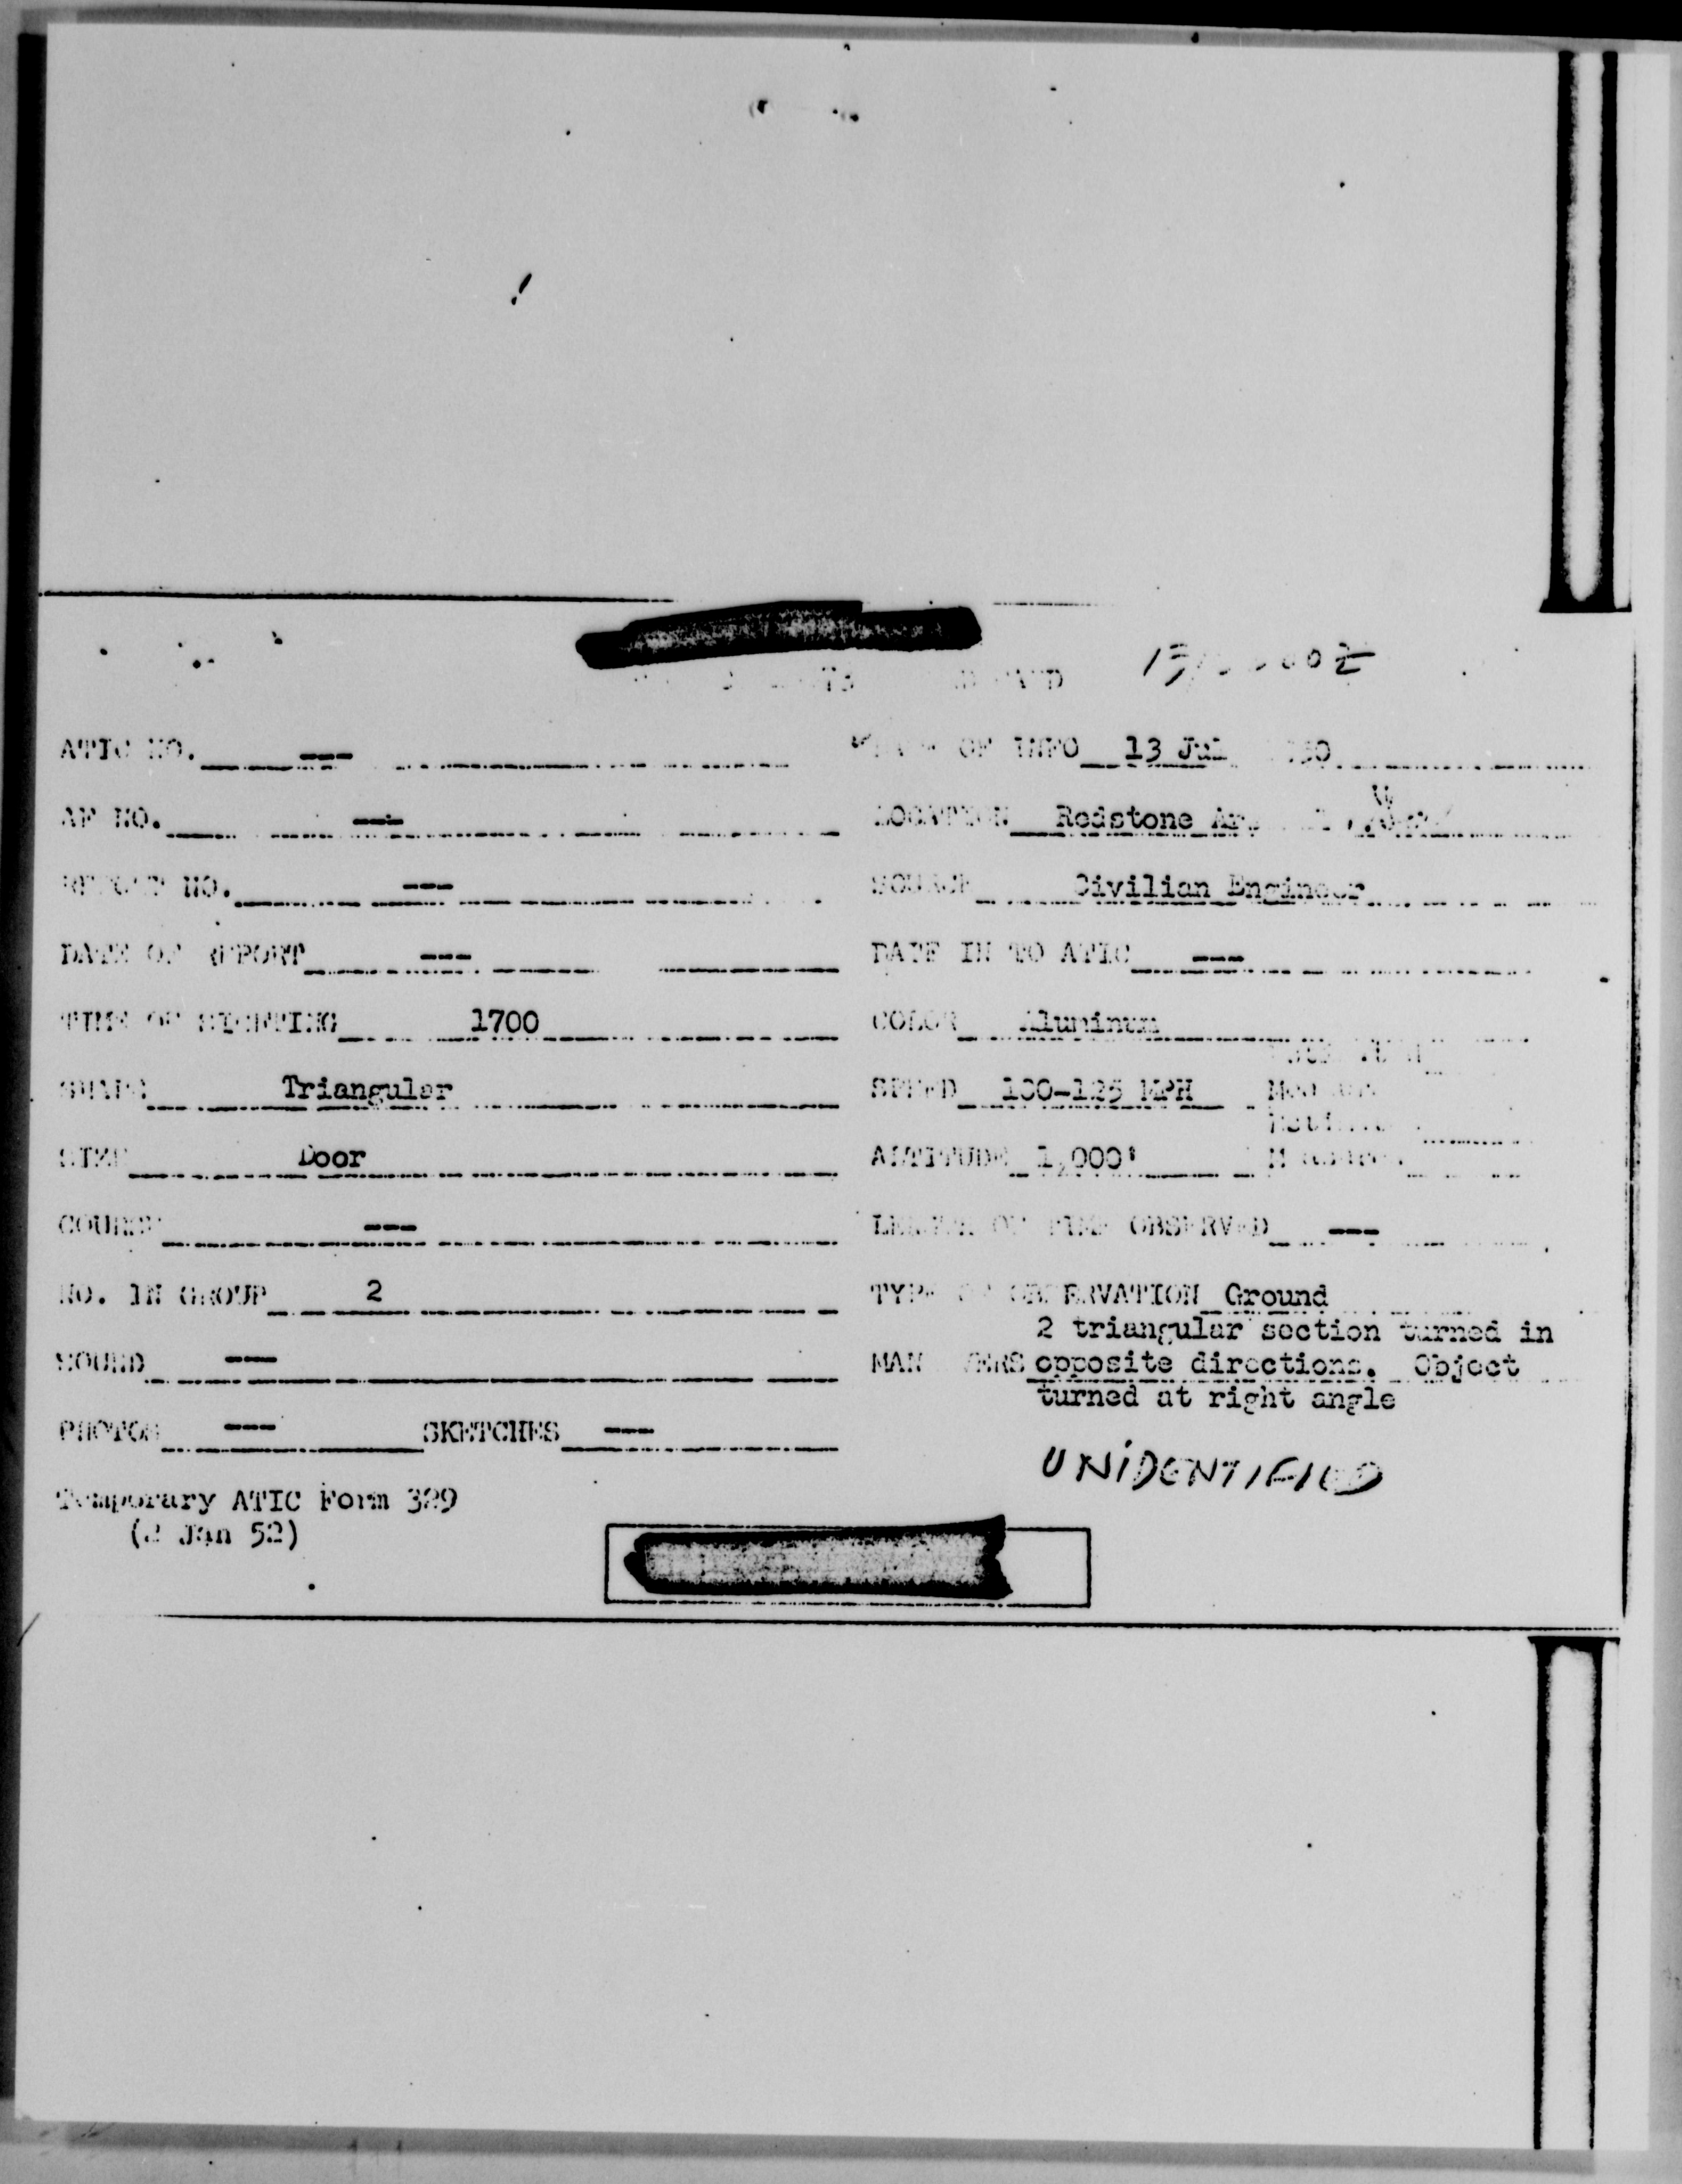 ATIC NO. --- OF INFO 13 Jul
NO. --- LOCATION Redstone
NO. --- SOURCE Civilian Engineer
DATE OF REPORT --- DATE IN TO ATIC ---
TIME OF SIGHTING 1700 COLOR Aluminum
SHAPE Triangular SPEED 100-125 MPH
SIZE Door ALTITUDE 1,000'
COURSE --- LENGTH OF TIME OBSERVED ---
NO. IN GROUP 2 TYPE OF OBSERVATION Ground
2 triangular section turned in
SOUND --- opposite directions. Object
turned at right angle
PHOTOS --- SKETCHES ---
UNIDENTIFIED
Temporary ATIC Form 329
(2 Jan 52)